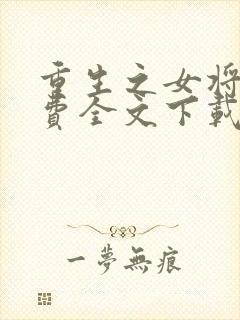 重生之女将
费全文下载
一夢無痕